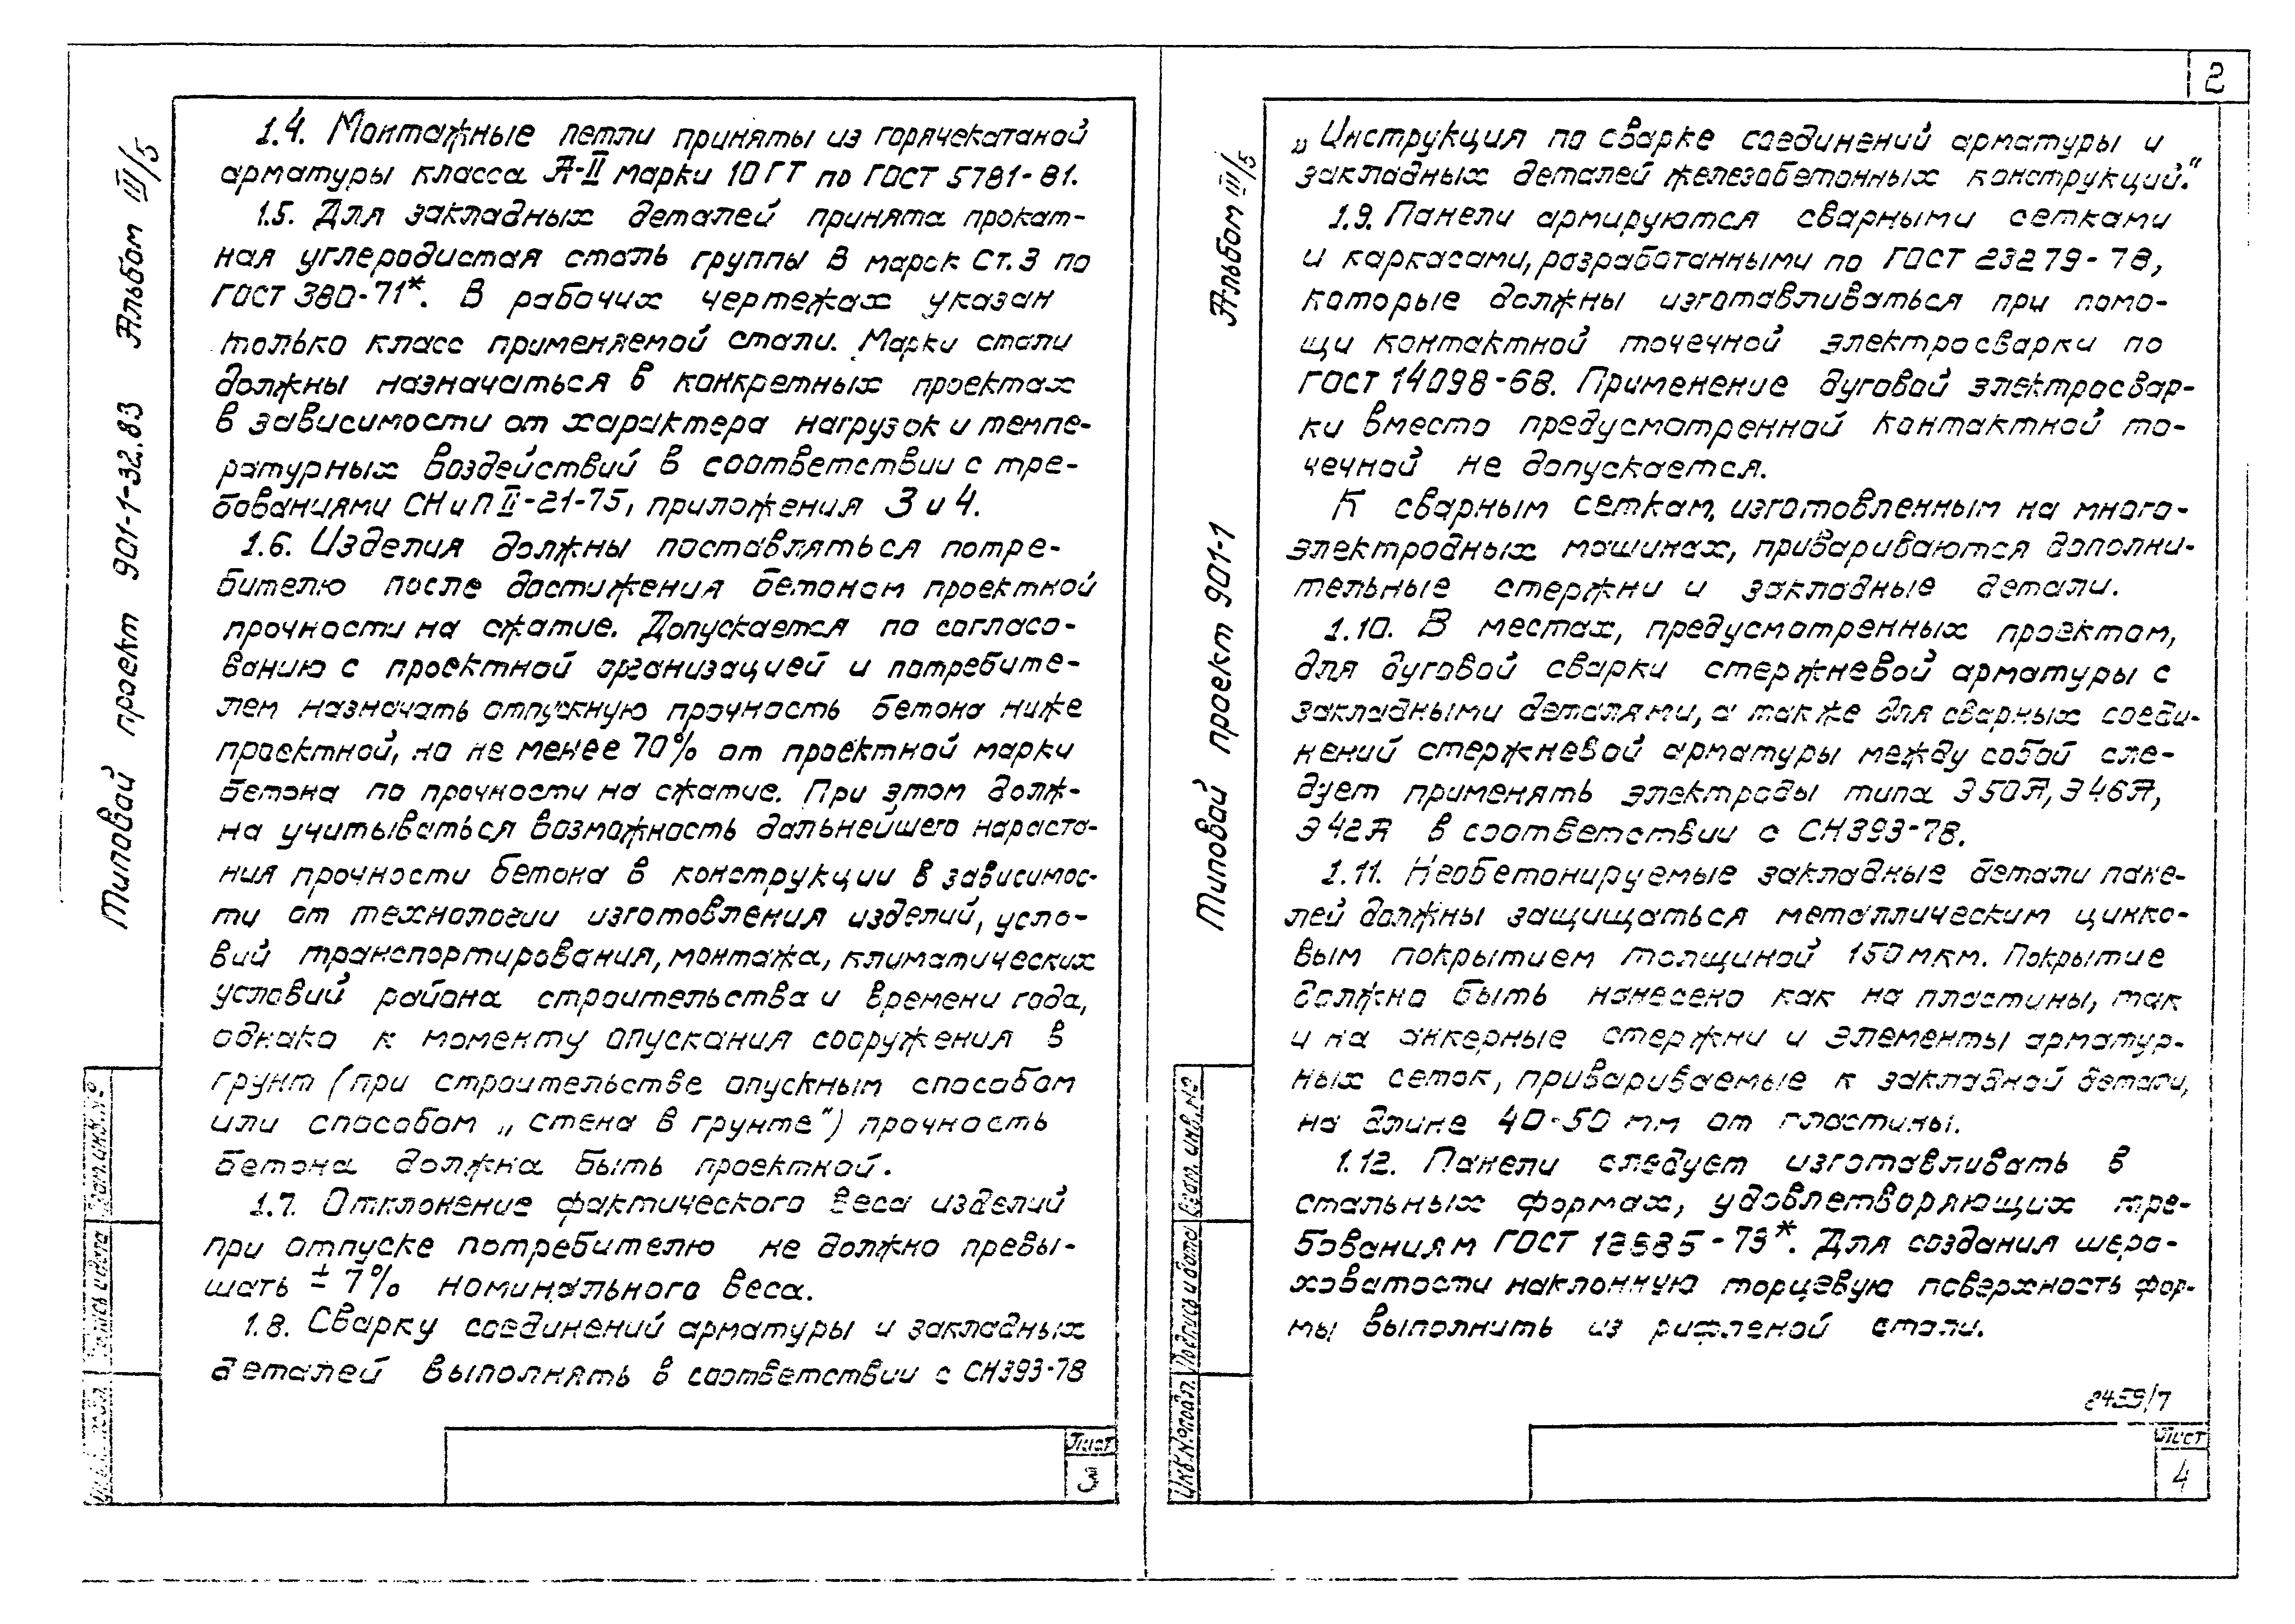 2
Типовой проект 901-1-32.83 Альбом III/5
1.4. Монтажные петли приняты из горячекатаной
арматуры класса А-II марки 10ГТ по ГОСТ 5781-81.
1.5. Для закладных деталей принята прокат-
ная углеродистая сталь группы В марок Ст.3 по
ГОСТ 380-71*. В рабочих чертежах указан
только класс применяемой стали. Марки стали
должны назначаться в конкретных проектах
в зависимости от характера нагрузок и темпе-
ратурных воздействий в соответствии с тре-
бованиями СНиП II-21-75, приложения 3 и 4.
1.6. Изделия должны поставляться потре-
бителю после достижения бетоном проектной
прочности на сжатие. Допускается по согласо-
ванию с проектной организацией и потребите-
лем назначать отпускную прочность бетона ниже
проектной, но не менее 70% от проектной марки
бетона по прочности на сжатие. При этом долж-
на учитываться возможность дальнейшего нараста-
ния прочности бетона в конструкции в зависимос-
ти от технологии изготовления изделий, усло-
вий транспортирования, монтажа, климатических
условий района строительства и времени года,
однако к моменту опускания сооружения в
грунт (при строительстве опускным способом
или способом „стена в грунте“) прочность
бетона должна быть проектной.
1.7. Отклонение фактического веса изделий
при отпуске потребителю не должно превы-
шать ± 7% номинального веса.
1.8. Сварку соединений арматуры и закладных
деталей выполнять в соответствии с СН393-78
Взам.инв.№
Подпись и дата
Инв.№ подл.
Лист
3
Типовой проект 901-1 Альбом III/5
„Инструкция по сварке соединений арматуры и
закладных деталей железобетонных конструкций.“
1.9. Панели армируются сварными сетками
и каркасами, разработанными по ГОСТ 23279-78,
которые должны изготавливаться при помо-
щи контактной точечной электросварки по
ГОСТ 14098-68. Применение дуговой электросвар-
ки вместо предусмотренной контактной то-
чечной не допускается.
К сварным сеткам, изготовленным на много-
электродных машинах, привариваются дополни-
тельные стержни и закладные детали.
1.10. В местах, предусмотренных проектом,
для дуговой сварки стержневой арматуры с
закладными деталями, а также для сварных соеди-
нений стержневой арматуры между собой сле-
дует применять электроды типа Э50А, Э46А,
Э42А в соответствии с СН393-78.
1.11. Необетонируемые закладные детали пане-
лей должны защищаться металлическим цинко-
вым покрытием толщиной 150мкм. Покрытие
должно быть нанесено как на пластины, так
и на анкерные стержни и элементы арматур-
ных сеток, привариваемые к закладной детали,
на длине 40-50 мм от пластины.
1.12. Панели следует изготавливать в
стальных формах, удовлетворяющих тре-
бованиям ГОСТ Для создания шеро-
ховатости наклонную торцевую поверхность фор-
мы выполнить из рифленой стали.
Взам. инв.№
Подпись и дата
Инв.№подл.
Лист
4